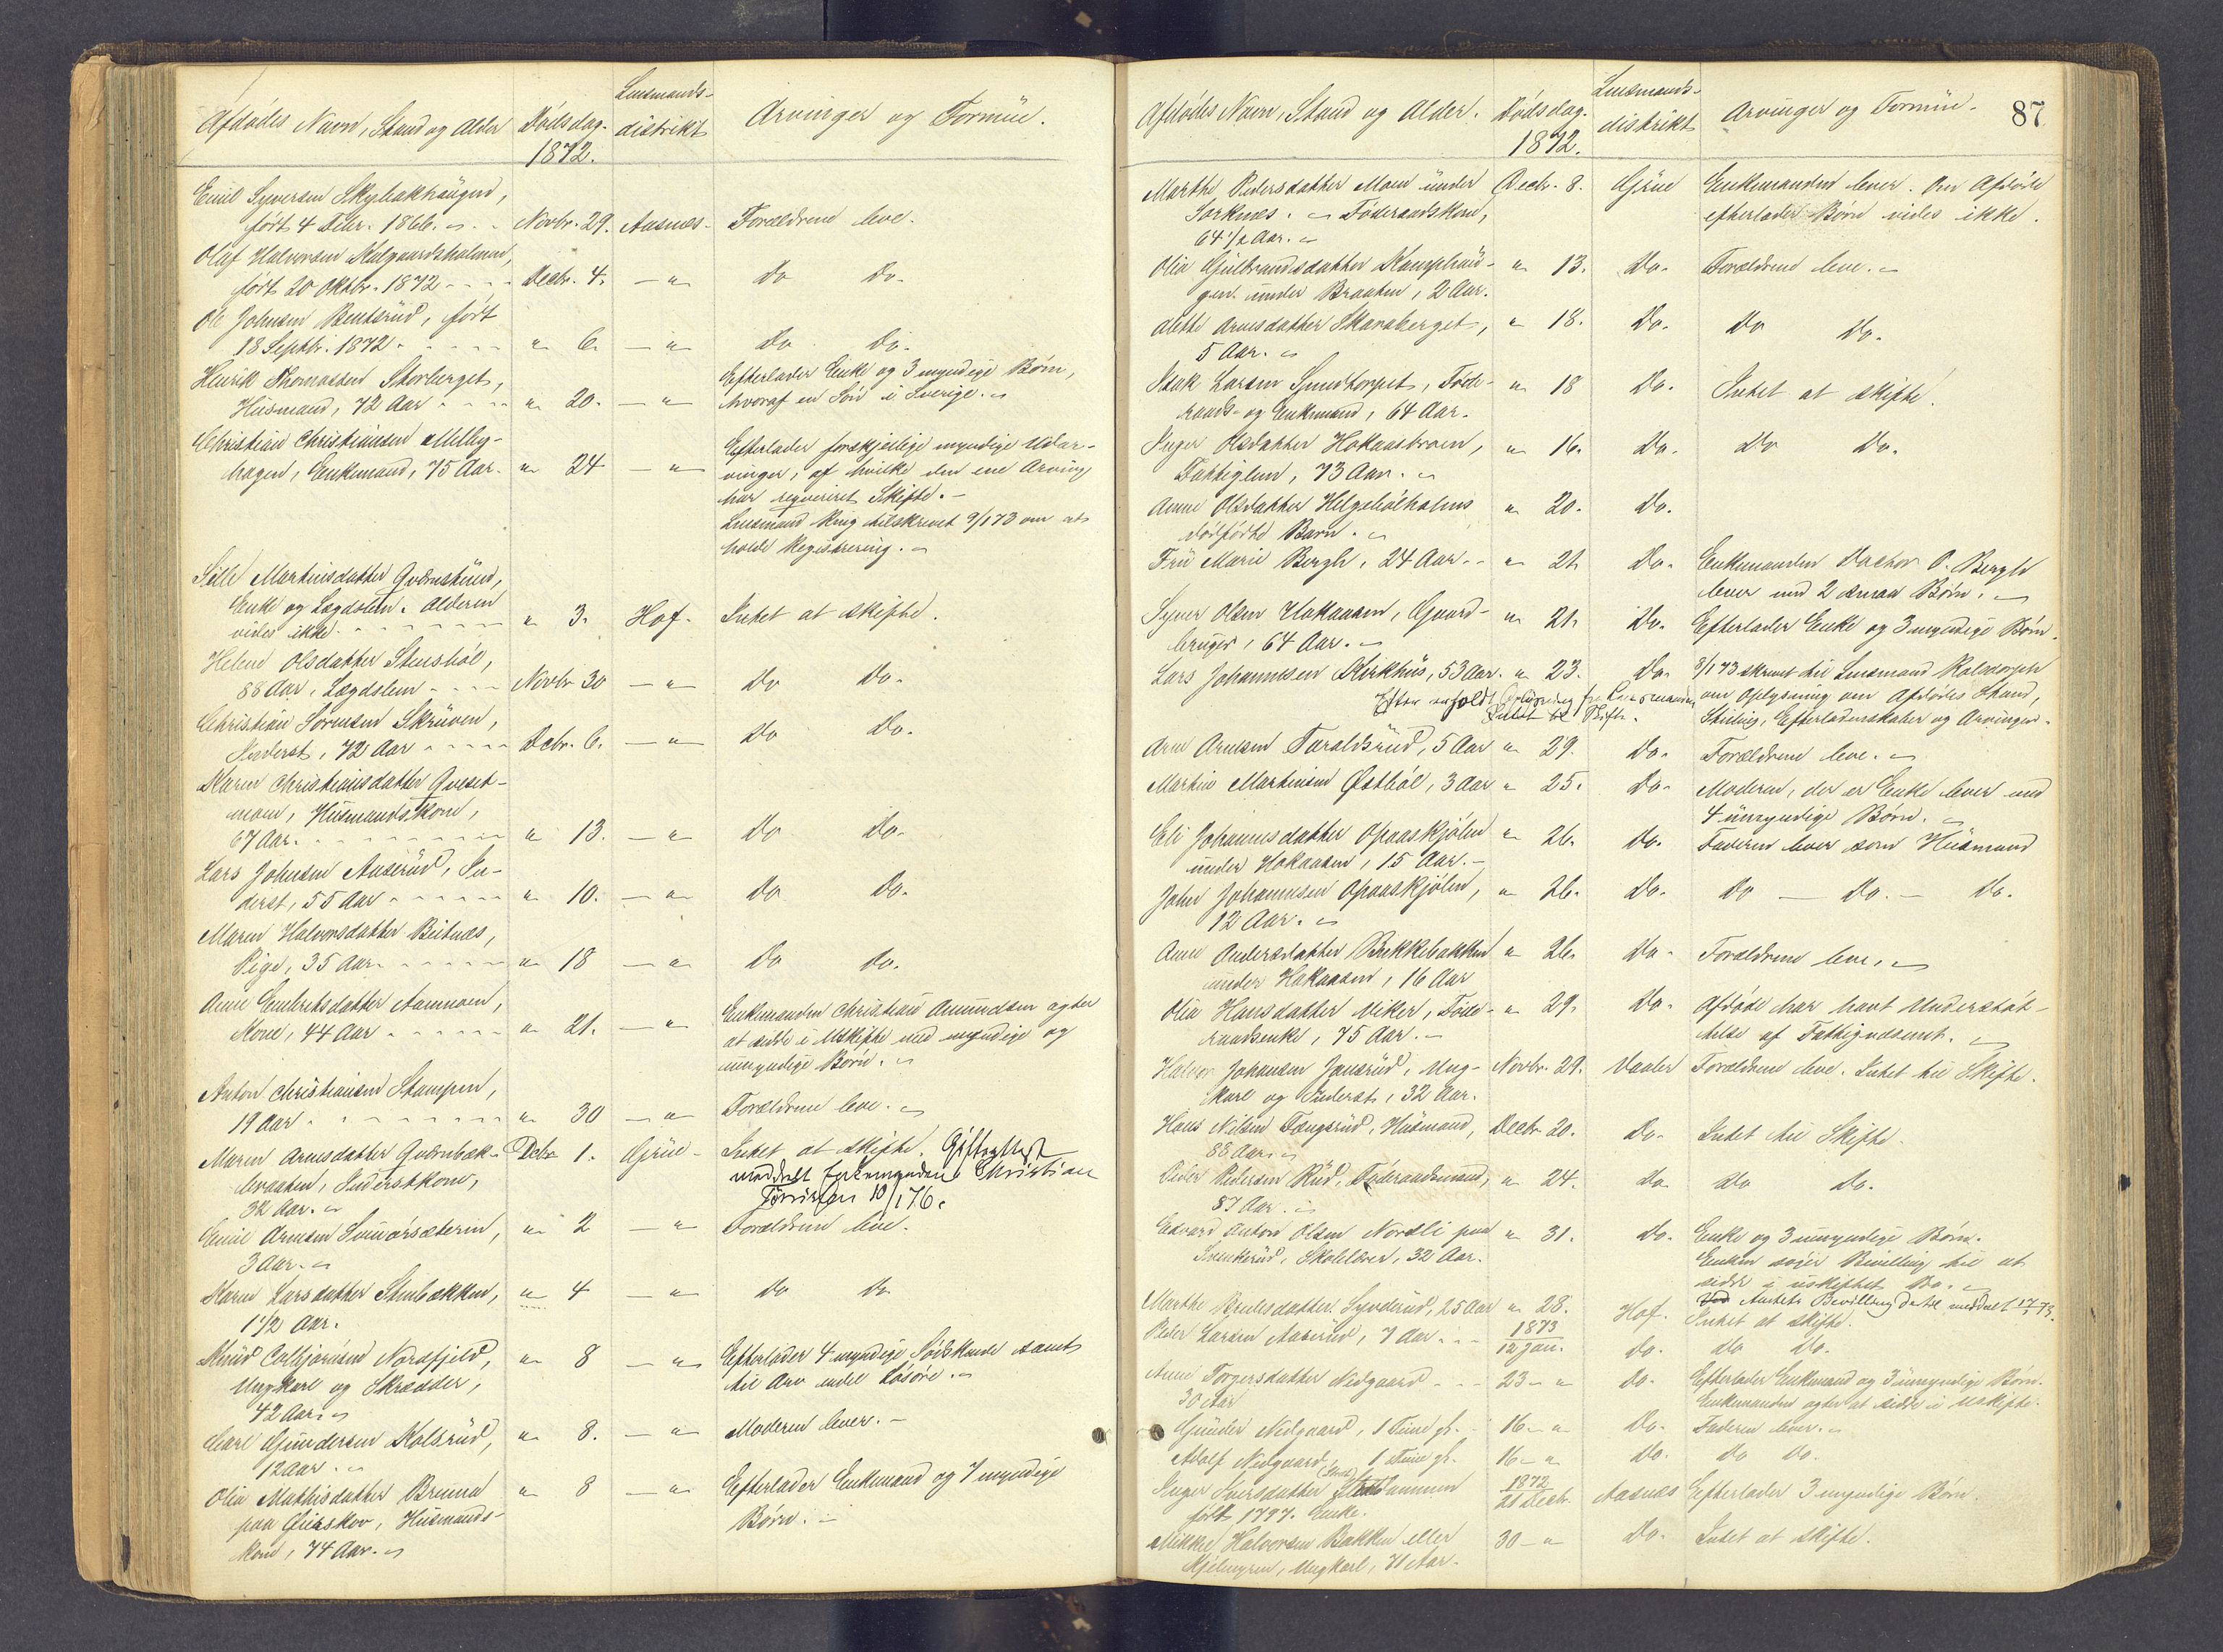 Afdødes Navn, Stand og Alder
Dødsdag.
1872.
Lensmands-
distrikt
Arvinger og Formue.
Emil Syversen Skybakhaugen,
født 4 Debr. 1866. Novbr. 29. Aasnæs- Forældrene leve.
Olaf Halvorsen
født 20 Oktbr. 1872 Decbr. 4. - " Do Do.
Ole Johnsen Bentsrud, født
18 Septbr. 1872 " 6. - " Do Do.
Henrik Thomassen Storberget,
Husmand, 72 Aar " 20. - "
Efterlader Enke og 3 myndige Børn,
hvoraf en Søn i Sverige.
Christian Christiansen
hagen, Enkemand, 75 Aar. " 24 - "
Efterlader forskjellige myndige Udar-
vinger, af hvilke den ene Arving
har reqvireret Skifte. -
Lensmand Ring tilskrevet 9/1 73 om at
holde Registrering.
Sille Martinsdatter Qvernstuen,
Enke og Lægdslem. Alderen
vides ikke. " 3. Hof. Intet at skifte.
Helene Olsdatter Stensbøl,
88 Aar, Lægdslem Novbr 30 - " Do Do.
Christian Sørensen Skruven,
Inderst, 72 Aar Debr. 6. - " Do Do.
Karen Christiansdatter Qveset-
moen, Husmandskone,
67 Aar. " 13. - " Do Do.
Lars Johnsen Aaserud, In-
derst, 55 Aar " 10. - " Do Do.
Maren Halvorsdatter Beitnæs,
Pige, 35 Aar. " 18 - " Do Do.
Anne Embretsdatter Aamoen,
Kone, 44 Aar " 21. - "
Enkemanden Christian Amundsen agter
at sidde i Uskifte med myndige og
umyndige Børn.
Anton Christiansen Stampen,
19 Aar " 30 - " Forældrene leve.
Maren Arnesdatter Qvernbæk- Debr 1. Grue- Intet at skifte. Gifteattest
braaten, Inderstkone,
32 Aar.
meddelt Enkemanden Christian
10/1 76.
Emil Arnesen
3 Aar. " 2 - " Forældrene leve.
Karen Larsdatter Stenbækken, " 4 - " Do Do
1 1/2 Aar.
Knud Colbjørnsen Nordfjeld, " 8 - " Efterlader 4 myndige Sødskende samt
Ungkarl og Skrædder,
42 Aar.
til Arv endel Løsøre.
Carl Gundersen Kolsrud, " 8. - " Moderen lever. -
12 Aar.
Olia Mathisdatter Bruna " 8 - " Efterlader Enkemand og 7 myndige
paa Grueskov, Husmands-
kone, 74 Aar.
Børn. -
87
Afdødes Navn, Stand og Alder.
Dødsdag.
1872.
Lensmands-
distrikt
Arvinger og Formue.
Marthe Pedersdatter Moen under Decbr. 8. Grue Enkemanden lever. Om Afdøde
Sorknæs. Føderaadskone,
64 1/2 Aar.
efterlader Børn vides ikke.
Olia Gulbrandsdatter Kamphau- " 13. Do. Forældrene leve.
gen under Braaten, 2 Aar.
Alette Arnesdatter Skaraberget, " 18. Do. Do Do.
5 Aar.
Isak Larsen Smedtorpet, Føde- " 18 Do. Intet at skifte.
raads- og Enkemand, 64 Aar.
Inger Olsdatter Hokaasbraen, " 16. Do. Do Do.
Fattiglem, 73 Aar.
Anne Olsdatter Helgebølholms " 20. Do.
dødfødte Barn.
Fru Marie Bergh, 24 Aar. " 21. Do. Enkemanden Doctor O. Bergh
lever med 2 smaa Børn.
Syver Olsen Hokaasen, Gaard- " 21. Do. Efterlader Enke og 3 myndige Børn.
bruger, 64 Aar. -
Lars Johannesen Kirkhus, 53 Aar. " 23. Do. 8/1 73 skrevet til Lensmand Kolstorph
om Oplysning om Afdødes Stand,
Stilling, Efterladenskaber og Arvinger.
Efter erholdt Oplysning fra Lensmanden
Intet til Skifte.
Arne Arnesen Taraldsrud, 5 Aar " 29. Do. Forældrene leve.
Martin Martinsen Østbøl, 3 Aar " 25. Do. Moderen, der er Enke lever med
4 umyndige Børn.
Eli Johannesdatter Opaaskjølen " 26. Do. Faderen lever som Husmand
under Hokaasen, 15 Aar. -
John Johannesen Opaaskjølen, " 26. Do. Do - Do. - Do.
12 Aar.
Anne Andersdatter Bækkebakken " 26. Do. Forældrene leve.
under Hokaasen, 16 Aar
Olia Hansdatter Viker, Føde- " 29. Do. Afdøde har havt Understøt-
raadsenke, 75 Aar. -
telse af Fattigvæsenet.
Halvor Johansen Jonsrud, Ung- Novbr. 29. Vaaler Forældrene leve. Intet til Skifte.
karl og Inderst, 32 Aar.
Hans Nilsen Tangsrud, Husmand, Decbr 20. Do. Intet til Skifte.
88 Aar.
Peder Pedersen Rud, Føderaadsmand, " 24. Do Do Do.
87 Aar.
Edvard Anton Olsen Nordli paa " 31. Do. Enke og 3 umyndige Børn.
Skolelærer, 32 Aar.
Enken søger Bevilling til at
sidde i uskiftet Bo.
Ved Amtets Bevilling dertil meddelt
Marthe Syverud, 25 Aar " 28. Hof. Intet at skifte.
Peder Larsen Aaserud, 7 Aar 1873
12 Jan. Do. Do Do.
Anne Torgersdatter Nedgaard 23 - " Do. Efterlader Enkemand og 3 umyndige Børn.
30 Aar
Enkemanden agter at sidde i Uskifte.
Gunder Nedgaard, 1 Time gl. 16 - " Do. Faderen lever.
Adolf Nedgaard, 1 Time gl. 16 - " Do. Do Do.
Inger Iversdatter 1872
21 Decbr. Aasnæs Efterlader 3 myndige Børn.
født 1797. Enke.
Mikkel Halvorsen Bakken eller 30 - " Do. Intet at skifte.
Kjølmyren, Ungkarl, 71 Aar.